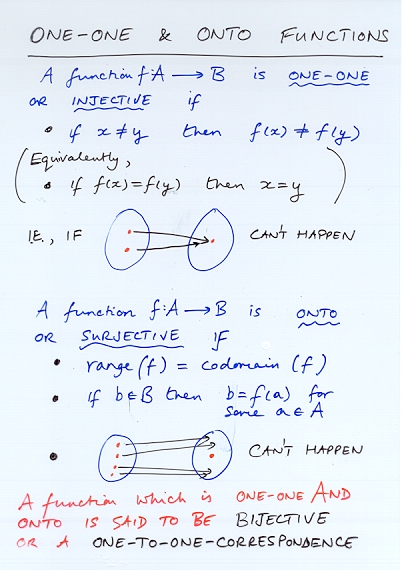 ONE-ONE & ONTO FUNCTIONS
A function f: A → B is ONE-ONE
OR INJECTIVE if
• if x ≠ y then f(x) ≠ f(y)
(Equivalently,
• if f(x) = f(y) then x = y)
I.E., IF CAN'T HAPPEN
A function f: A → B is ONTO
OR SURJECTIVE IF
• range(f) = codomain(f)
• if b ∈ B then b = f(a) for
some a ∈ A
• CAN'T HAPPEN
A function which is ONE-ONE AND
ONTO IS SAID TO BE BIJECTIVE
OR A ONE-TO-ONE-CORRESPONDENCE